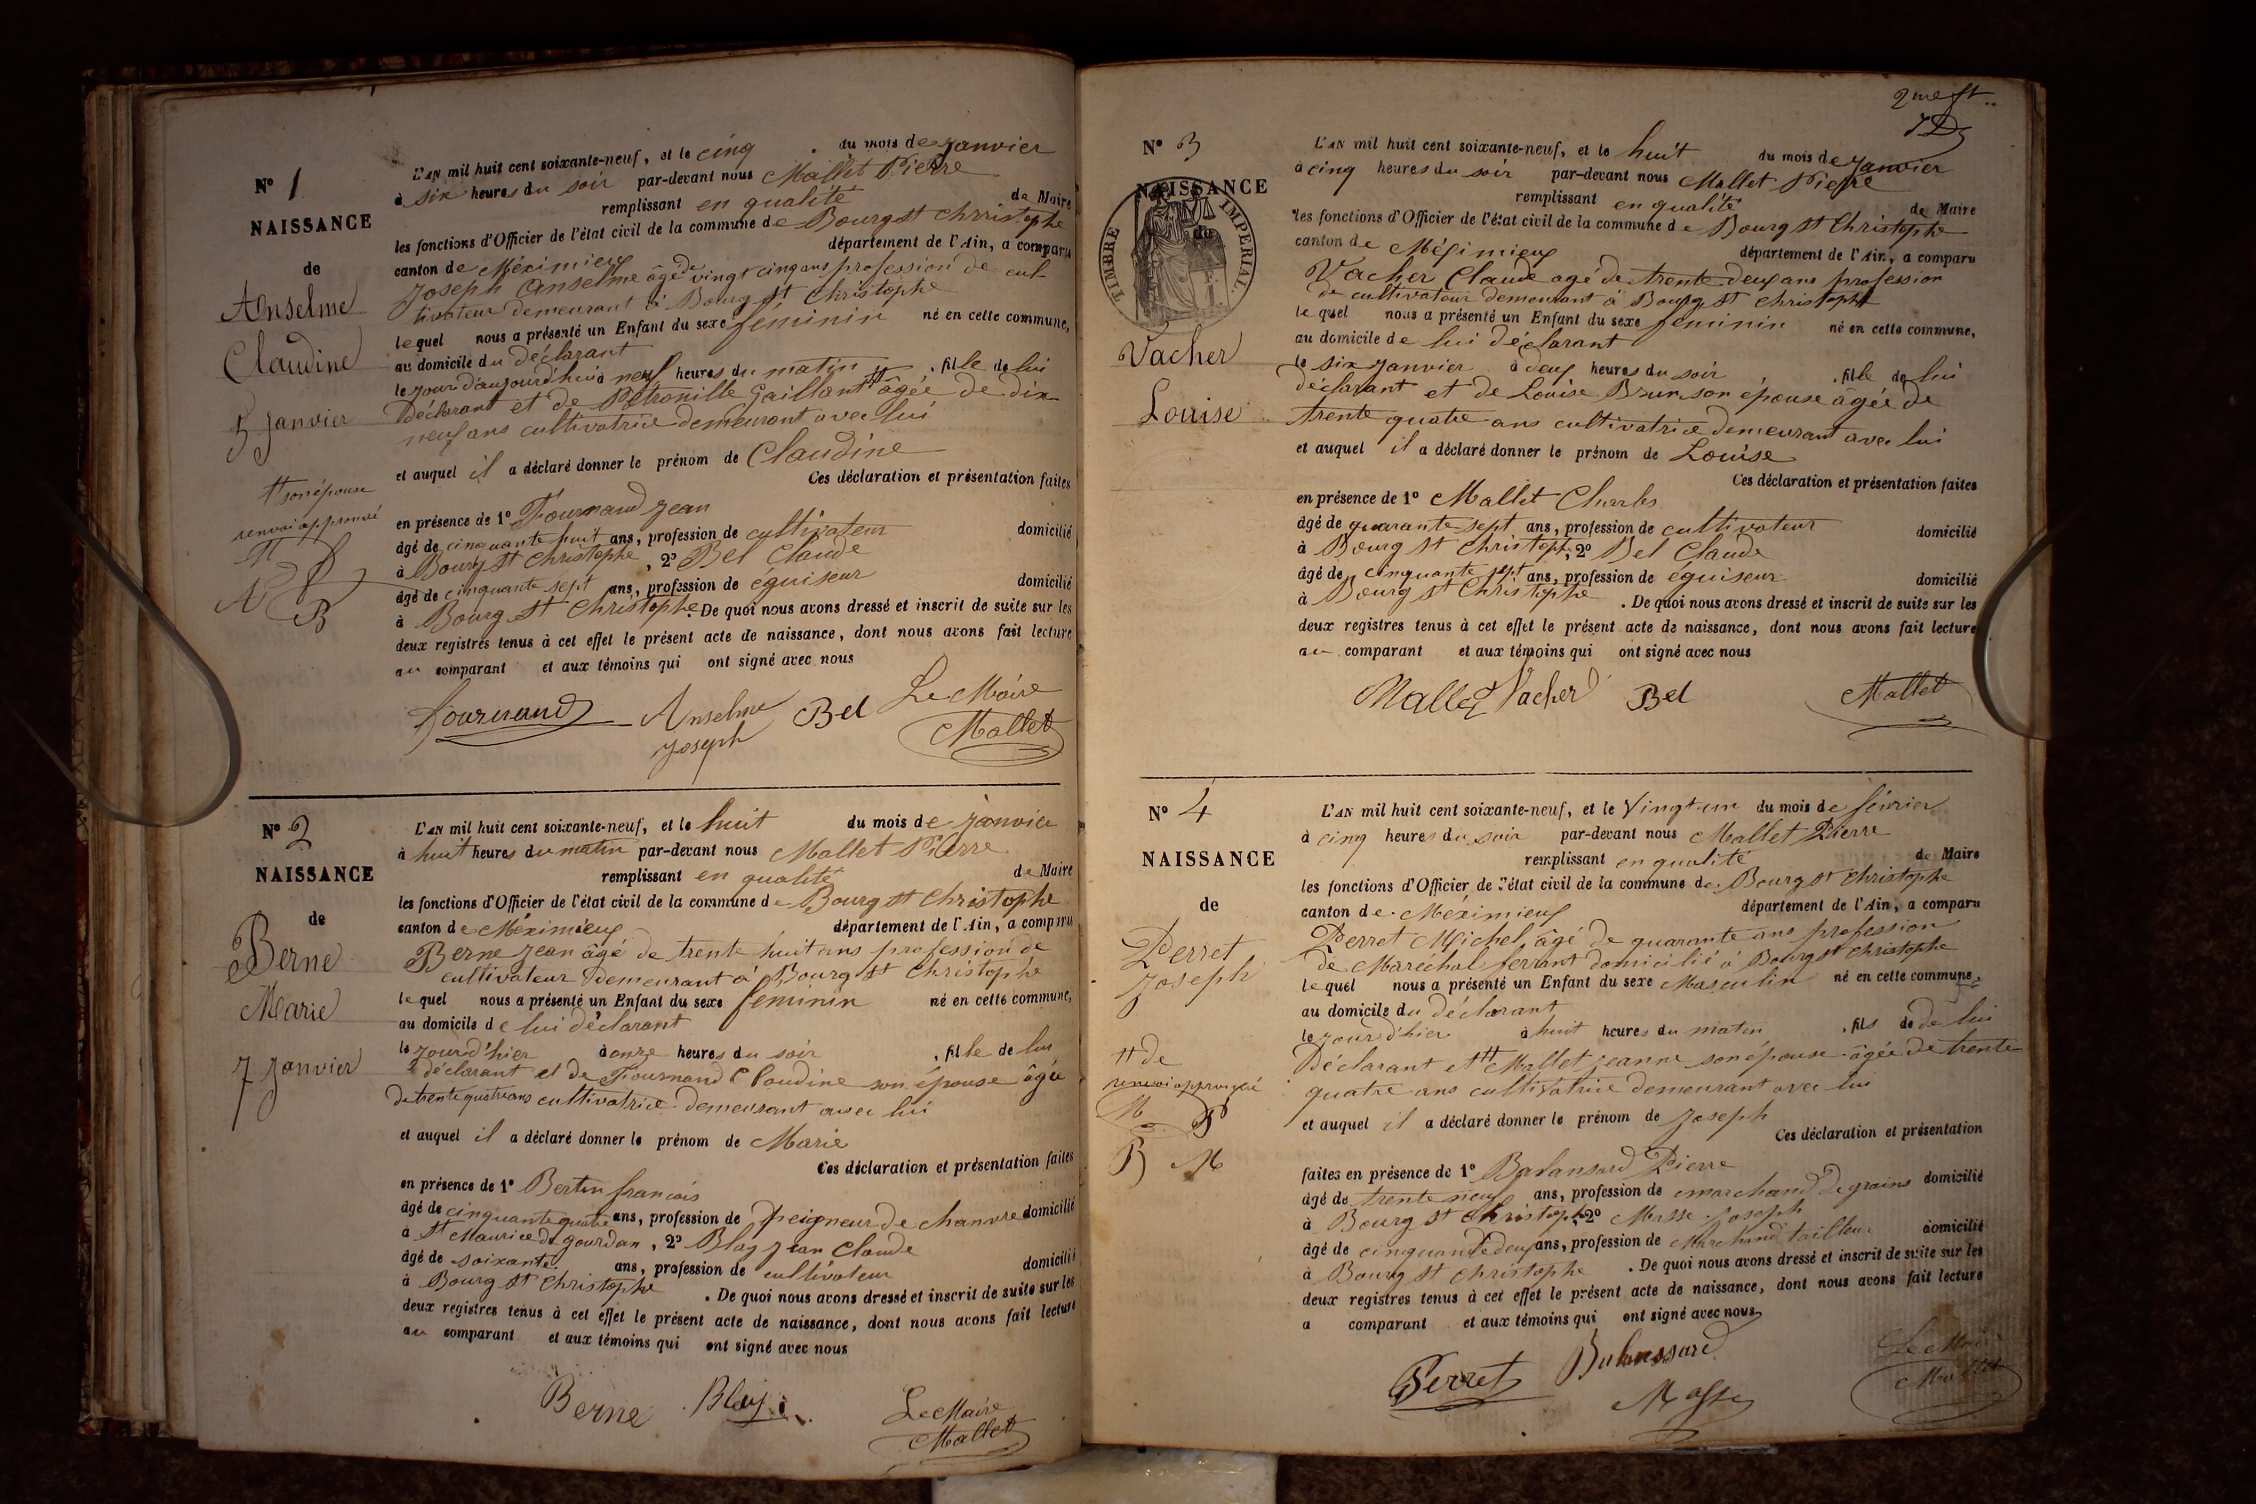 Nº 1
NAISSANCE
de
Anselme
Claudine
5 Janvier
L'AN mil huit cent soixante-neuf, et le cinq du mois de Janvier
à six heures du soir par-devant nous Mallet Pierre
remplissant en qualité de Maire
les fonctions d'Officier de l'état civil de la commune de Bourg St Christophe
canton de Méximieux département de l'Ain, a comparu
Joseph Anselme âgé de vingt cinq ans profession de cul-
tivateur demeurant à Bourg St Christophe
lequel nous a présenté un Enfant du sexe féminin né en cette commune,
au domicile du déclarant
le jour d'aujourd'hui à neuf heures du matin, fille de lui
Déclarant et de Pétronille Gaillant tt âgée de dix
neuf ans cultivatrice demeurant avec lui
et auquel il a déclaré donner le prénom de Claudine
Ces déclaration et présentation faites
tt son épouse
renvoi approuvé
en présence de 1º Fournand Jean
âgé de cinquante huit ans, profession de cultivateur domicilié
à Bourg St Christophe, 2º Bel Claude
âgé de cinquante sept ans, profession de éguiseur domicilié
à Bourg St Christophe. De quoi nous avons dressé et inscrit de suite sur les
deux registres tenus à cet effet le présent acte de naissance, dont nous avons fait lecture
au comparant et aux témoins qui ont signé avec nous
Fournand Anselme Joseph Bel Le Maire
Mallet
Nº 2
NAISSANCE
de
Berne
Marie
7 Janvier
L'AN mil huit cent soixante-neuf, et le huit du mois de Janvier
à huit heures du matin par-devant nous Mallet Pierre
remplissant en qualité de Maire
les fonctions d'Officier de l'état civil de la commune de Bourg St Christophe
canton de Méximieux département de l'Ain, a comparu
Berne Jean âgé de trente huit ans profession de
cultivateur demeurant à Bourg St Christophe
lequel nous a présenté un Enfant du sexe féminin né en cette commune,
au domicile de lui déclarant
le jour d'hier à onze heures du soir, fille de lui
déclarant et de Fournand Claudine son épouse âgée
de trente quatre ans cultivatrice demeurant avec lui
et auquel il a déclaré donner le prénom de Marie
Ces déclaration et présentation faites
en présence de 1º Bertin françois
âgé de cinquante quatre ans, profession de Peigneur de chanvre domicilié
à St Maurice de gourdan, 2º Blay Jean Claude
âgé de soixante ans, profession de cultivateur domicilié
à Bourg St Christophe. De quoi nous avons dressé et inscrit de suite sur les
deux registres tenus à cet effet le présent acte de naissance, dont nous avons fait lecture
au comparant et aux témoins qui ont signé avec nous
Berne Blay Le Maire
Mallet
2me ft
Nº 3
NAISSANCE
de
TIMBRE IMPERIAL
Vacher
Louise
L'AN mil huit cent soixante-neuf, et le huit du mois de Janvier
à cinq heures du soir par-devant nous Mallet Pierre
remplissant en qualité de Maire
les fonctions d'Officier de l'état civil de la commune de Bourg St Christophe
canton de Méximieux département de l'Ain, a comparu
Vacher Claude agé de trente deux ans profession
de cultivateur demeurant à Bourg St Christophe
lequel nous a présenté un Enfant du sexe féminin né en cette commune,
au domicile de lui déclarant
le six Janvier à deux heures du soir, fille de lui
déclarant et de Louise Brun son épouse âgée de
trente quatre ans cultivatrice demeurant avec lui
et auquel il a déclaré donner le prénom de Louise
Ces déclaration et présentation faites
en présence de 1º Mallet Charles
âgé de quarante sept ans, profession de cultivateur domicilié
à Bourg St Christophe, 2º Bel Claude
âgé de cinquante sept ans, profession de éguiseur domicilié
à Bourg St Christophe. De quoi nous avons dressé et inscrit de suite sur les
deux registres tenus à cet effet le présent acte de naissance, dont nous avons fait lecture
au comparant et aux témoins qui ont signé avec nous
Mallet Vacher Bel Mallet
Nº 4
NAISSANCE
de
Perret
Joseph
L'AN mil huit cent soixante-neuf, et le Vingt un du mois de février
à cinq heures du soir par-devant nous Mallet Pierre
remplissant en qualité de Maire
les fonctions d'Officier de l'état civil de la commune de Bourg St Christophe
canton de Méximieux département de l'Ain, a comparu
Perret Michel âgé de quarante ans profession
de Maréchal ferrant domicilié à Bourg St Christophe
lequel nous a présenté un Enfant du sexe Masculin né en cette commune,
au domicile du déclarant
le jour d'hier à huit heures du matin, fils de de lui
Déclarant et tt Mallet Jeanne son épouse âgée de trente
quatre ans cultivatrice demeurant avec lui
tt de
renvoi approuvé
M P
B M
et auquel il a déclaré donner le prénom de Joseph
Ces déclaration et présentation
faites en présence de 1º Balansard Pierre
âgé de trente neuf ans, profession de marchand de grains domicilié
à Bourg St Christophe, 2º Masse Joseph
âgé de cinquante deux ans, profession de Marchand tailleur domicilié
à Bourg St Christophe. De quoi nous avons dressé et inscrit de suite sur les
deux registres tenus à cet effet le présent acte de naissance, dont nous avons fait lecture
a comparant et aux témoins qui ont signé avec nous
Perret Balansard Le Maire
Masse Mallet